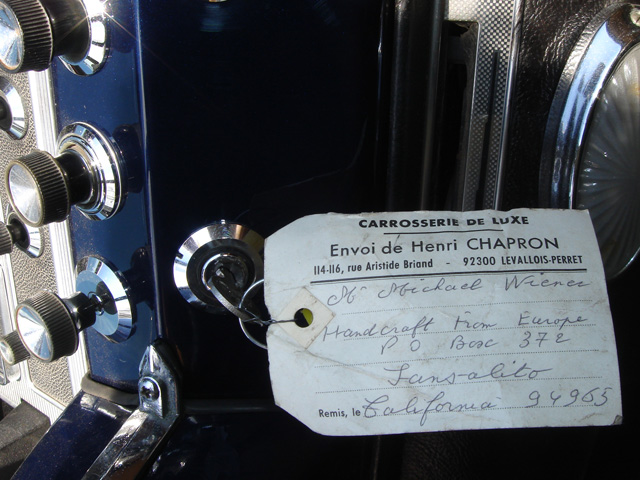 CARROSSERIE DE LUXE
Envoi de Henri CHAPRON
114-116, rue Aristide Briand - 92300 LEVALLOIS-PERRET
Mr Michael Wiener
Handcraft From Europe
P O Box 372
Sansalito
Remis, le California 94965